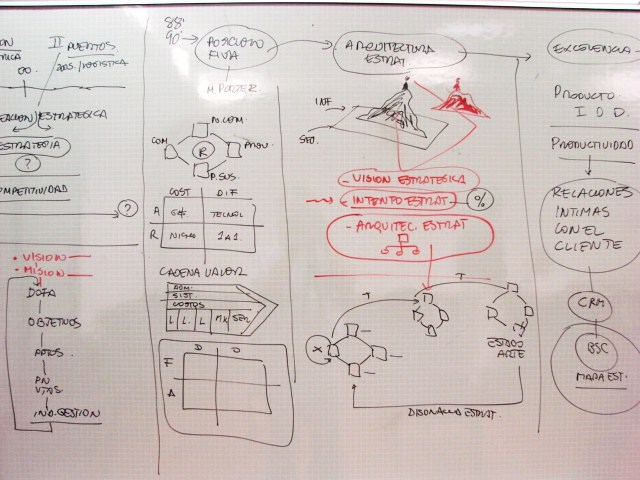 II PUERTOS
∞.
2005./LOGISTICA
ESTRATEGICA
ESTRATEGIA
?
COMPETITIVIDAD
?
• VISION
• MISION
DOFA
OBJETIVOS
IND. GESTION
88'
90'
POSICIONO
FIVA
M. PORTER
PO.COM.
COM
R
PROV.
P.SUS.
COST DIF
A
TECNOL
R
NICHO
1 A 1.
CADENA VALOR
ADM.
SIST.
COSTOS
L L L MK SER.
D O
F
A
ARQUITECTURA
ESTRAT
INF
- VISION ESTRATEGICA
INTENTO ESTRAT. %
- ARQUITEC. ESTRAT
T
T
X
ESTADO
ARTE
EXCELENCIA
PRODUCTO
I D D.
PRODUCTIVIDAD
RELACIONES
INTIMAS
CON EL
CLIENTE
CRM
BSC